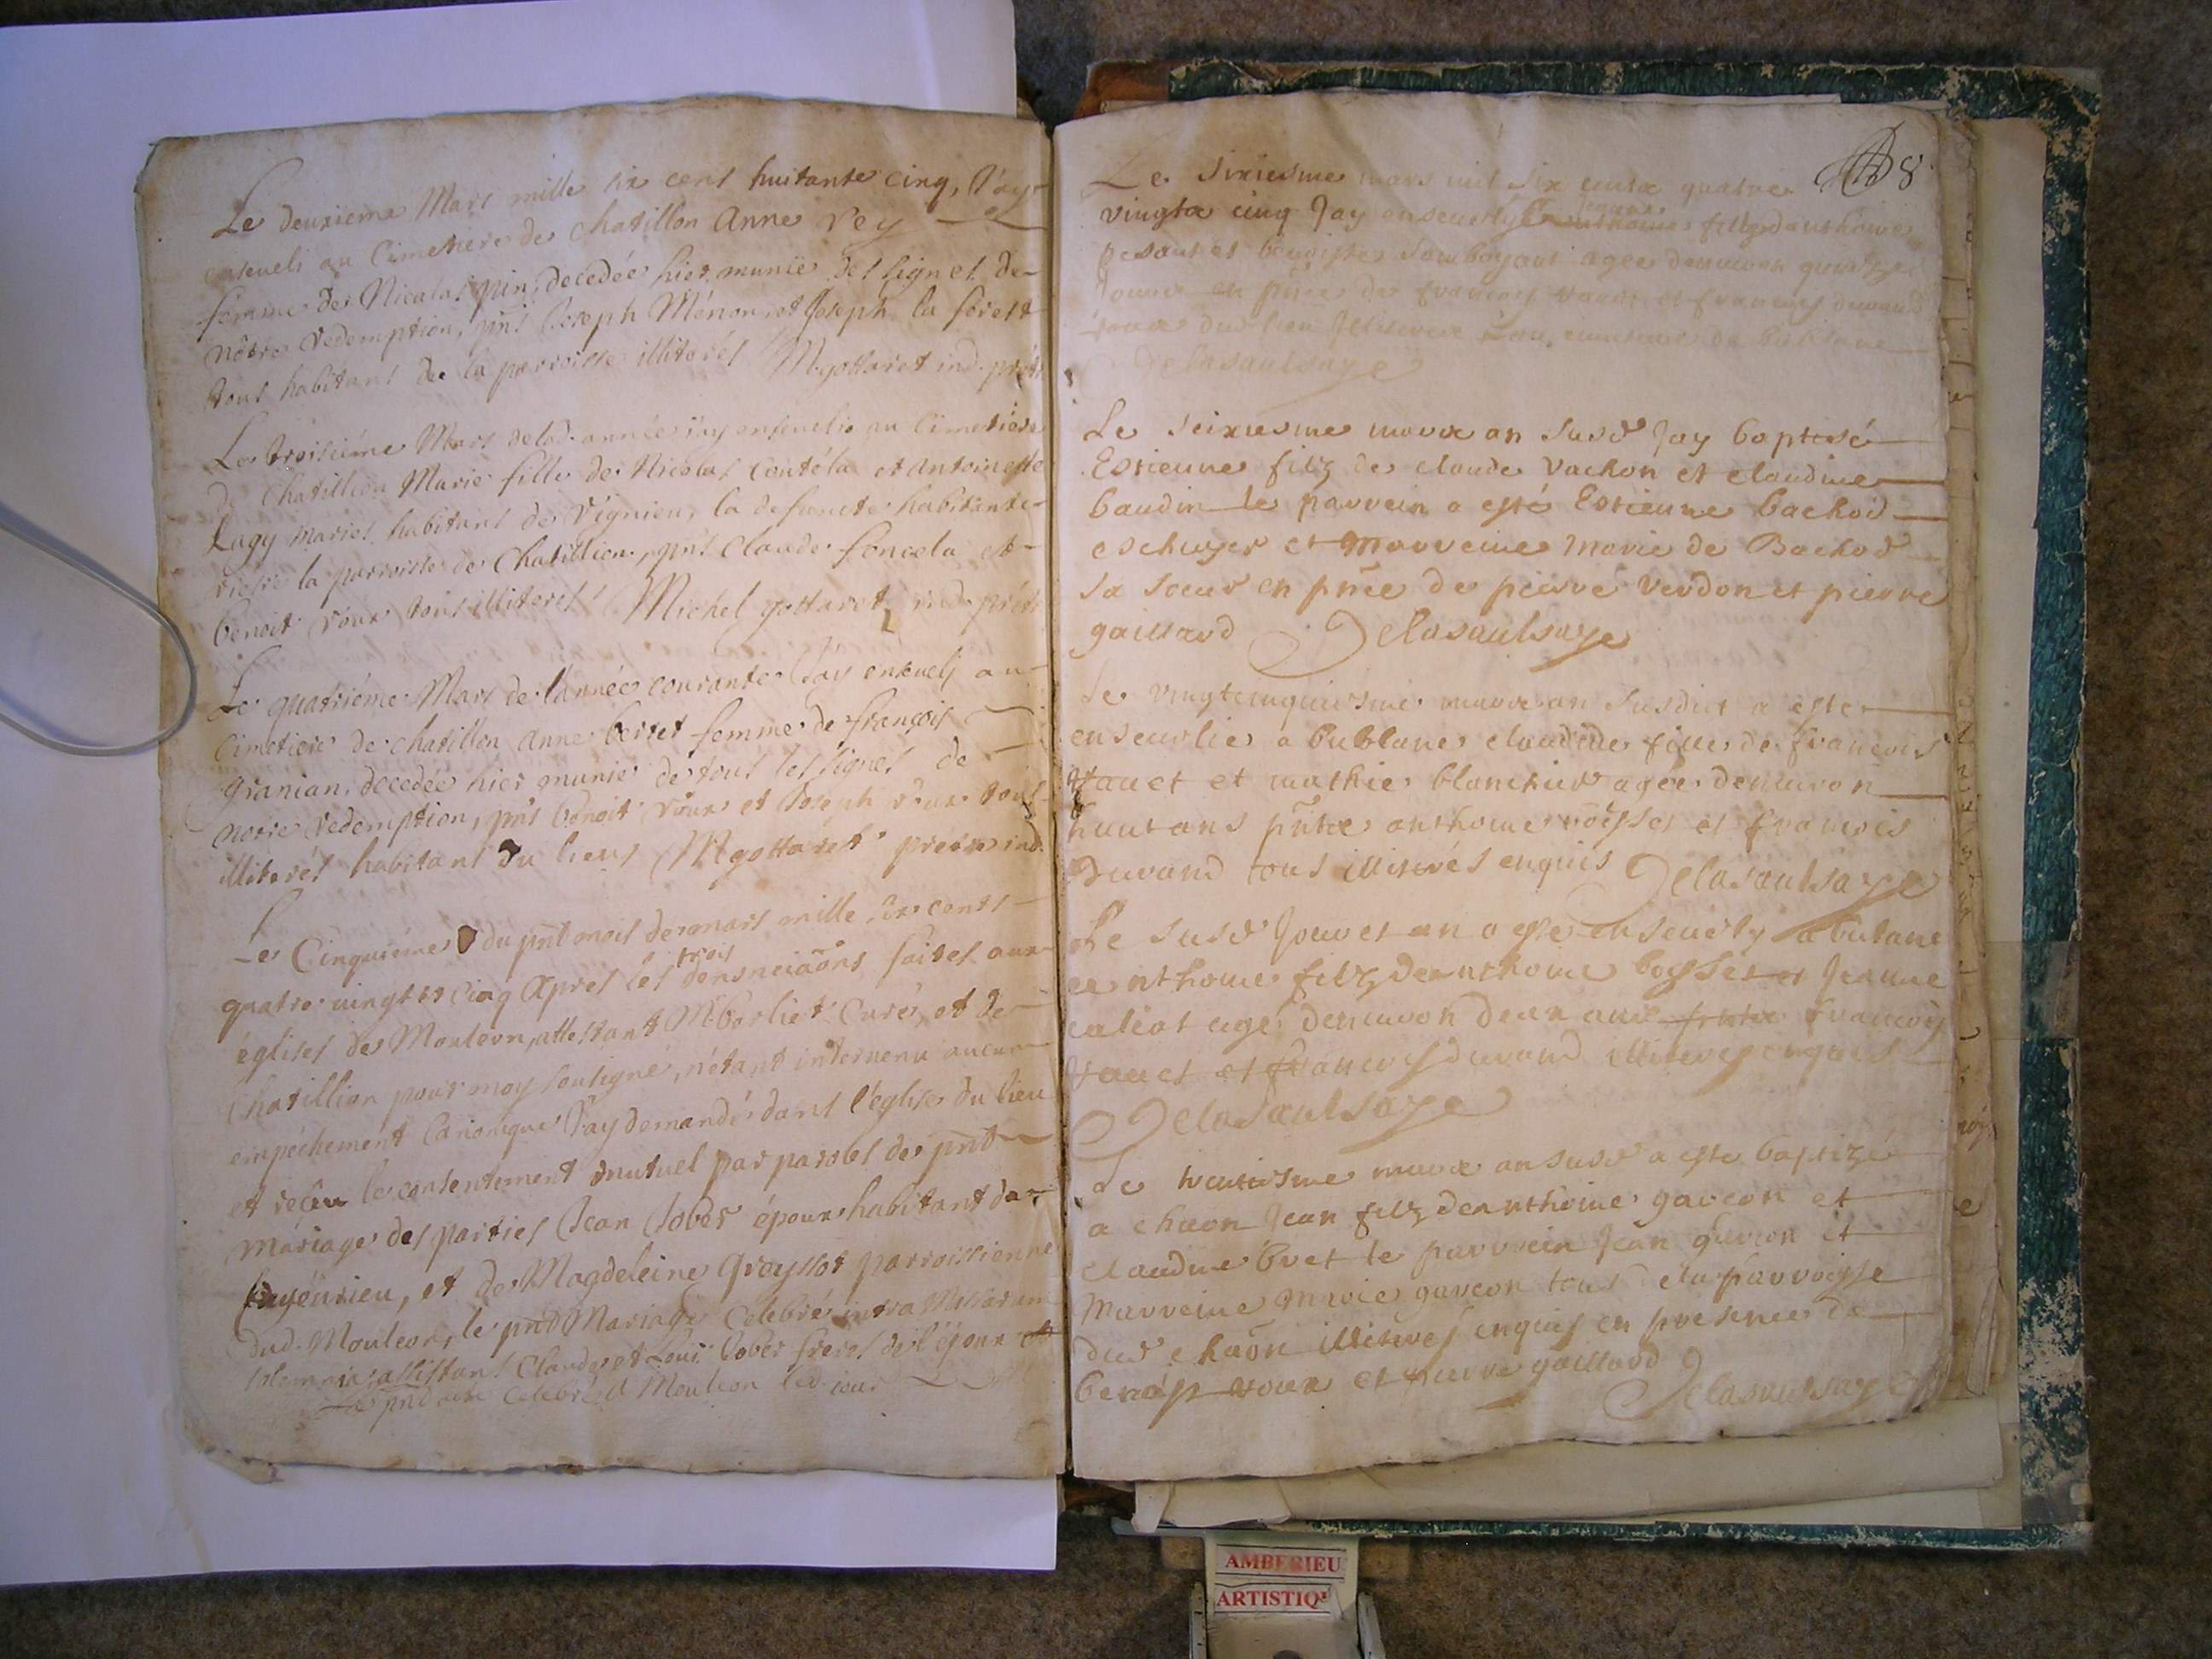 Le deuxieme Mars mille six cent huitante cinq, J'ay
enseueli au Cimetiere de Chatillon Anne Rey
femme de Nicolas pin, decedée hier munie des signes de
nôtre redemption, pnts Joseph Ménon, et Joseph la forest
tous habitans de la parroisse illiterés Mgottaret ind. prêtr
Le troisiéme Mars delad. année j'ay enseuelie au Cimetiere
de Chatillion Marie fille de Nicolas et Antoinette
Lugy mariés habitans de Végnieu, la defuncte habitante
riere la parroisse de Chatillion, pnts Claude foncela et
benoit roux tous illiterés Michel gottaret ind. prêtr
Le quatriéme Mars de l'année courante J'ay enseueli au
Cimetiere de chatillon Anne bertet femme de françois
granian, decedée hier munie de tous les signes de
notre redemption, pnts benoit roux et Joseph roux tous
illiterés habitans du lieu Mgottaret prêtre ind.
Le Cinquiéme du pnt mois de mars mille six cents
quatre vingts et cinq Apres les trois densneiaons faites aux
églises de Mouleon, attestant Mr borliet Curé, et de
Chatillion pour moy soussigné, n'étant interuenu aucun
empéchement Canonique J'ay demandé dans l'église du lieu
et reçeu le consentement mutuel par paroles de pnt
mariage des parties Jean Jober époux habitant de
, et de Magdeleine Greyssot parroissienne
dud. Mouleon, le pnt Mariage Celebré intra Missarum
solemnia, assistans Claude et Louis Jober freres de l'époux
Le pnt acte Celebré a Mouleon led. jour
8
Le sixiesme mars mil six centz quatre
vingtz cinq Jay enseuely Jeanne fille danthoine
pesant et benoiste agee denuiron quinze
Jours en pnce de francois et francois durand
tous dud lieu au cimetiere de bublane
Delasaulsaye
Le seixiesme marx an susd Jay baptisé
Estienne filz de claude vachon et claudine
baudin le parrein a esté Estienne bachod
escuyer et marreine marie de Bachod
sa soeur en pnce de pierre verdon et pierre
gaillard Delasaulsaye
Le vingtcinquiesme marx an susdict a este
enseuelie a bublane claudine fille de francois
et mathie blanchard agée denuiron
huict ans pntz anthoine et francois
Durand tous illiterés enquis Delasaulsaye
Le susd Jour et an a este enseuely a bublane
anthoine filz deanthoine boysset et Jeanne
agé denuiron deux ans francois
et francois durand illiteres enquis
Delasaulsaye
Le trentiesme marx an susd a este baptizé
a chaon Jean filz deanthoine garcon et
claudine bret le parrein Jean garcon et
marreine marie garcon tous de la parroisse
dud chaon illiteres enquis en presence de
benoist roux et pierre gaillard
Delasaulsaye
AMBERIEU
ARTISTIQ